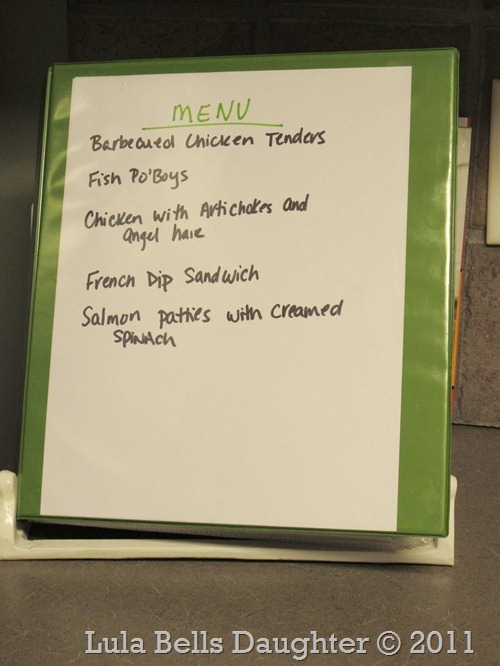 MENU
Barbecued Chicken Tenders
Fish Po'Boys
Chicken with Artichokes and
angel hair
French Dip Sandwich
Salmon patties with Creamed
Spinach
Lula Bells Daughter © 2011